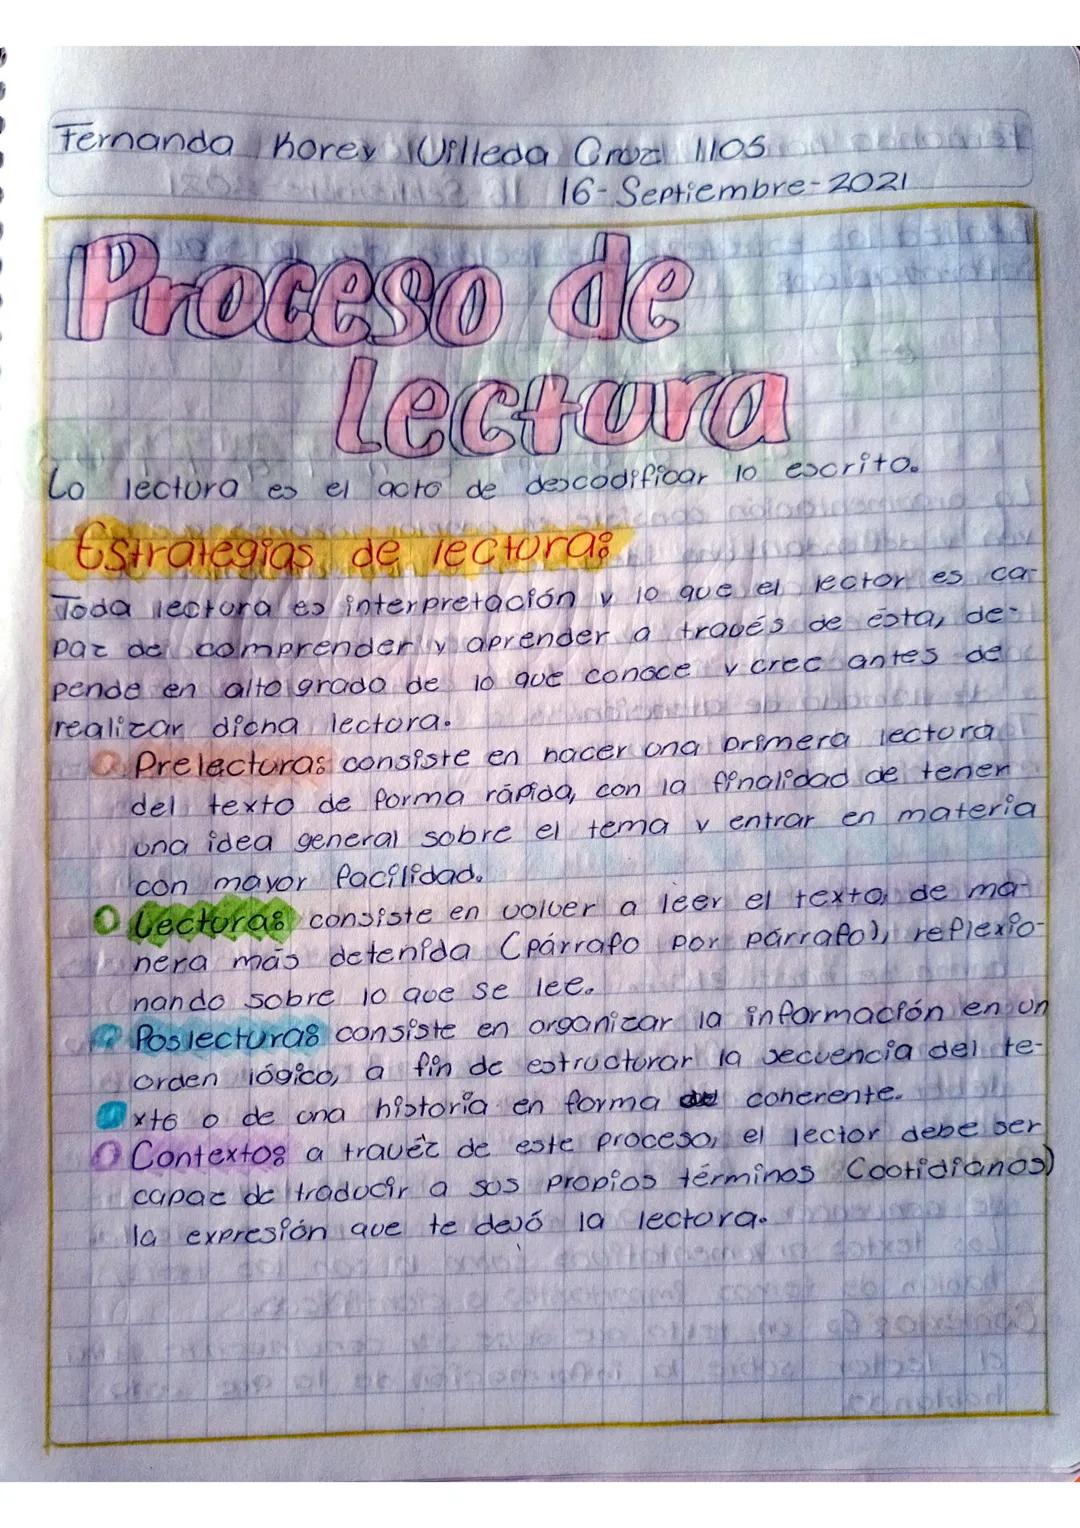 Fernanda Korey Villeda Cruz 1105
16-Septiembre-2021
Proceso de
Lectura
La lectura es el acto de descodificar lo escrito.
Estrategias de lectura:
Toda lectura es interpretación y lo que el lector es ca-
paz de comprender y aprender a través de ésta, de-
pende en alto grado de lo que conoce y cree antes de
realizar dicha lectora.
Prelectura: consiste en hacer una primera lectora
del texto de forma rápida, con la finalidad de tener
una idea general sobre el tema y entrar en materia
con mayor facilidad.
Lectura: consiste en volver a leer el texto, de ma-
nera más detenida (párrafo por párrafo), reflexio-
nando sobre lo que se lee.
Poslectura: consiste en organizar la información en un
orden lógico, a fin de estructurar la secuencia del te-
xto o de una historia en forma coherente.
Contexto: a travéz de este proceso, el lector debe ser
capaz de traducir a sus propios términos (cotidianos)
la expresión que te dejó la lectora.